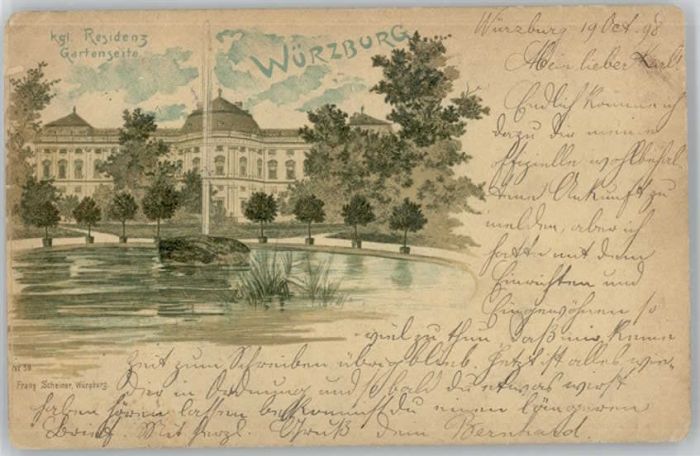 kgl. Residenz
Gartenseite
WÜRZBURG
Würzburg 19 Oct. 98
Mein lieber Karl!
Endlich komme ich
dazu dir meine
offizielle wohlbehal-
tene Ankunft zu
melden, aber ich
hatte mit dem
Einrichten und
Eingewöhnen so
viel zu thun, daß mir keine
Zeit zum Schreiben übrig blieb. Jetzt ist alles wie-
der in Ordnung und sobald du etwas
haben hören lassen bekommst du einen längeren
Brief. Mit herzl. Gruß dein Bernhard.
No 38
Franz Scheiner, Würzburg.